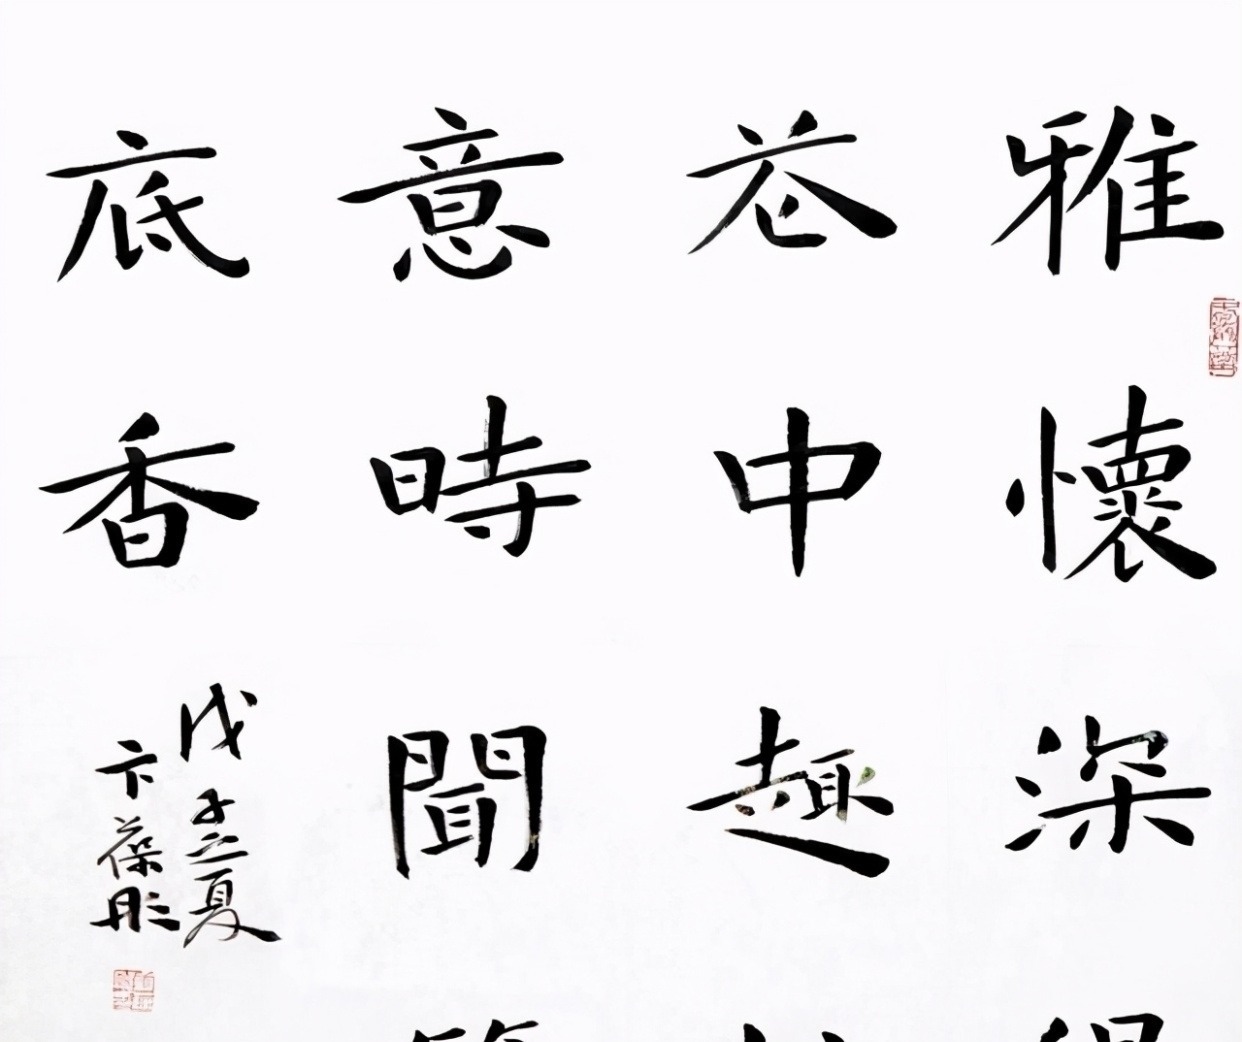 雅懷深
花中趣
意時聞
底香
戊子立夏
卞葆彤